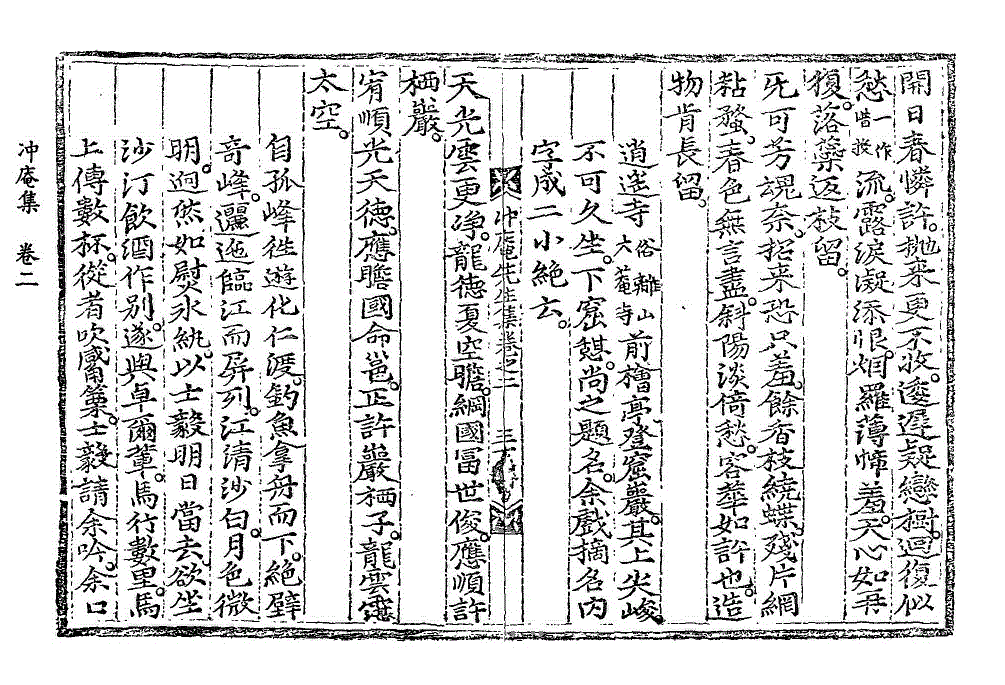 開日春憐許抛來更不收逶遲疑戀樹迴復似
愁一作惜投流露淚凝添恨烟羅薄幃羞天心如再
復落蘂返枝留
死可芳魂奈招来恐只羞餘香枝繞蝶殘片網
粘蝥春色無言盡斜陽淡倚愁容華如許也造
物肯長留
逍遥寺俗離山大菴寺前檜亭登窟巖其上尖峻
不可久坐下窟鯤尚之題名余戲摘名内
字成二小絶云
天光雲更净龍德夏空瞻綱國冨世俊應順許
栖巖
宥順光天德應瞻國命邕正許巖栖子龍雲還
太空
自孤峰徃遊化仁渡釣魚拿舟而下絶壁
竒峰邐迤臨江而屏列江清沙白月色微
明迥然如熨氷紈以士毅明日當去欲坐
沙汀飲酒作别遂與卓爾輩馬行數里馬
上傳數杯從者吹觱篥士毅請余吟余口
冲庵先生集卷之二 三
冲庵集 卷二